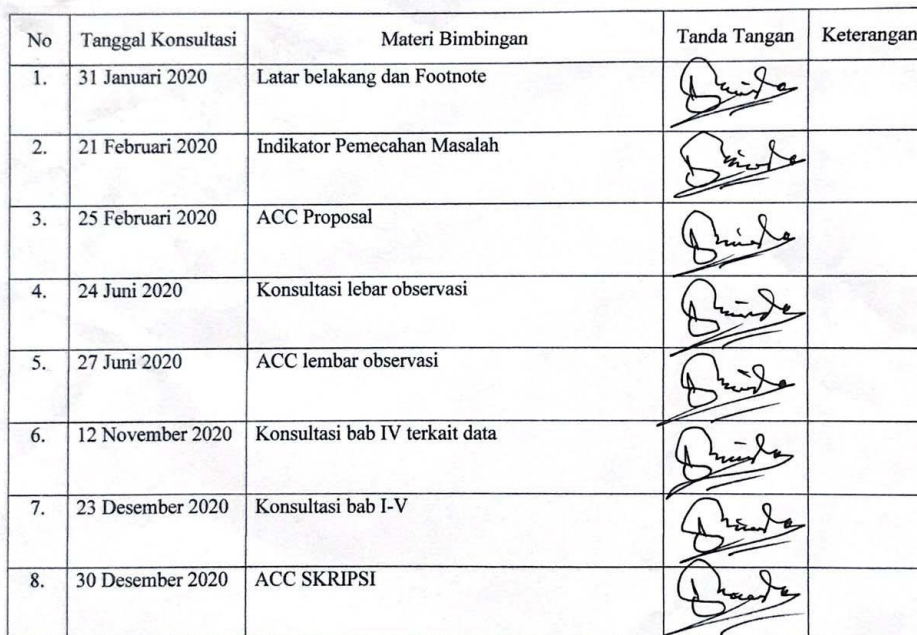 No Tanggal Konsultasi Materi Bimbingan Tanda Tangan Keterangan
1. 31 Januari 2020 Latar belakang dan Footnote
2. 21 Februari 2020 Indikator Pemecahan Masalah
3. 25 Februari 2020 ACC Proposal
4. 24 Juni 2020 Konsultasi lebar observasi
5. 27 Juni 2020 ACC lembar observasi
6. 12 November 2020 Konsultasi bab IV terkait data
7. 23 Desember 2020 Konsultasi bab I-V
8. 30 Desember 2020 ACC SKRIPSI